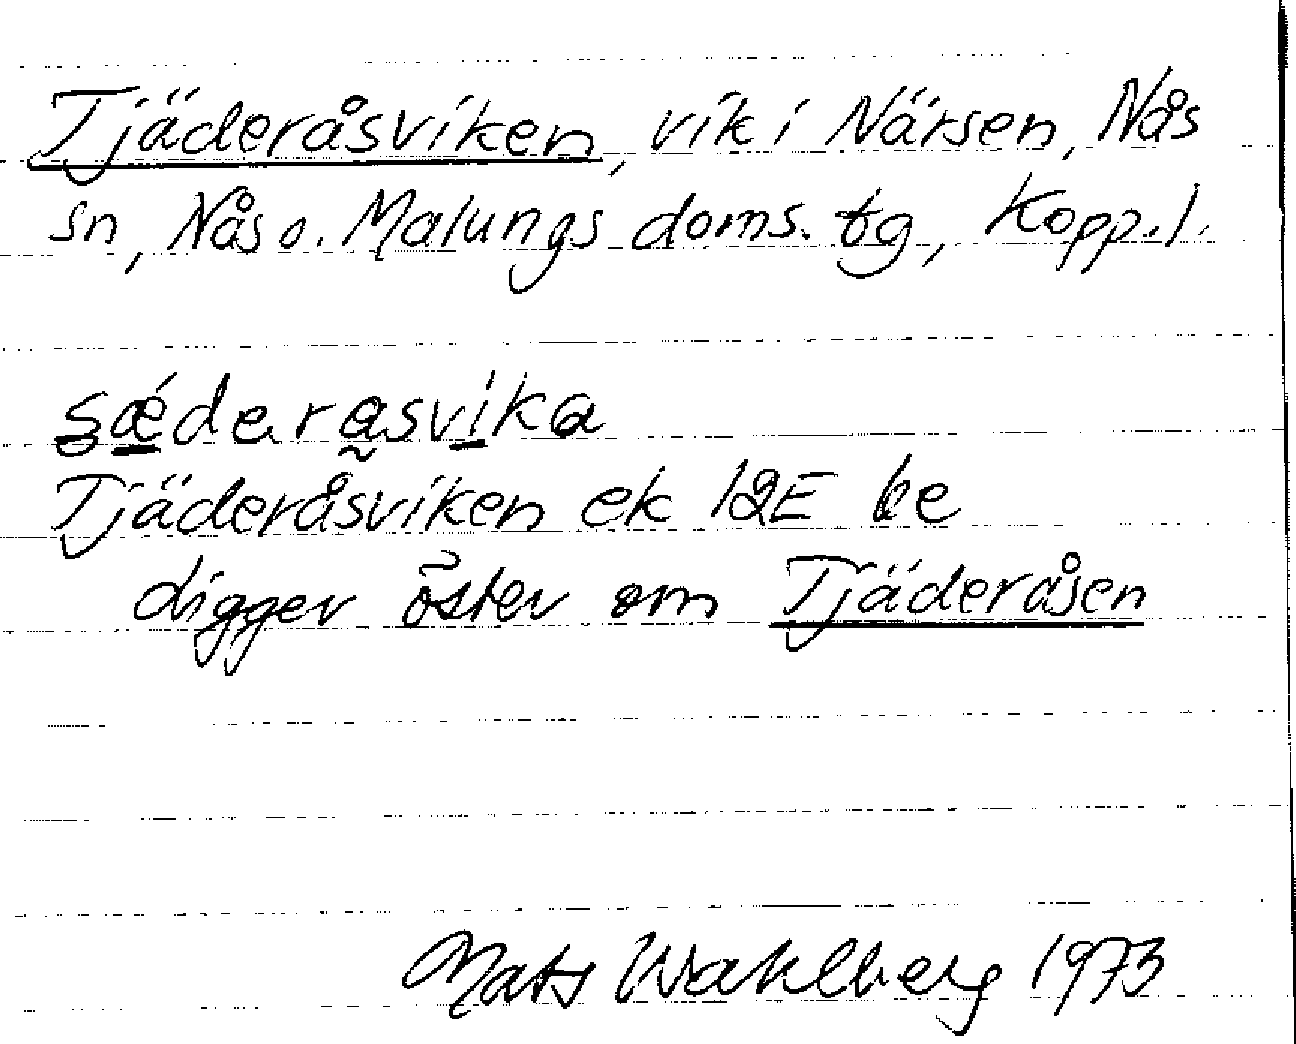 Tjäderåsviken, vik i Närsen, Nås
sn, Nås o. Malungs doms. tg, Kopp. l.
sǽderasvika
Tjäderåsviken ek 12E 6e
Ligger öster om Tjäderåsen
Mats Wahlberg 1973